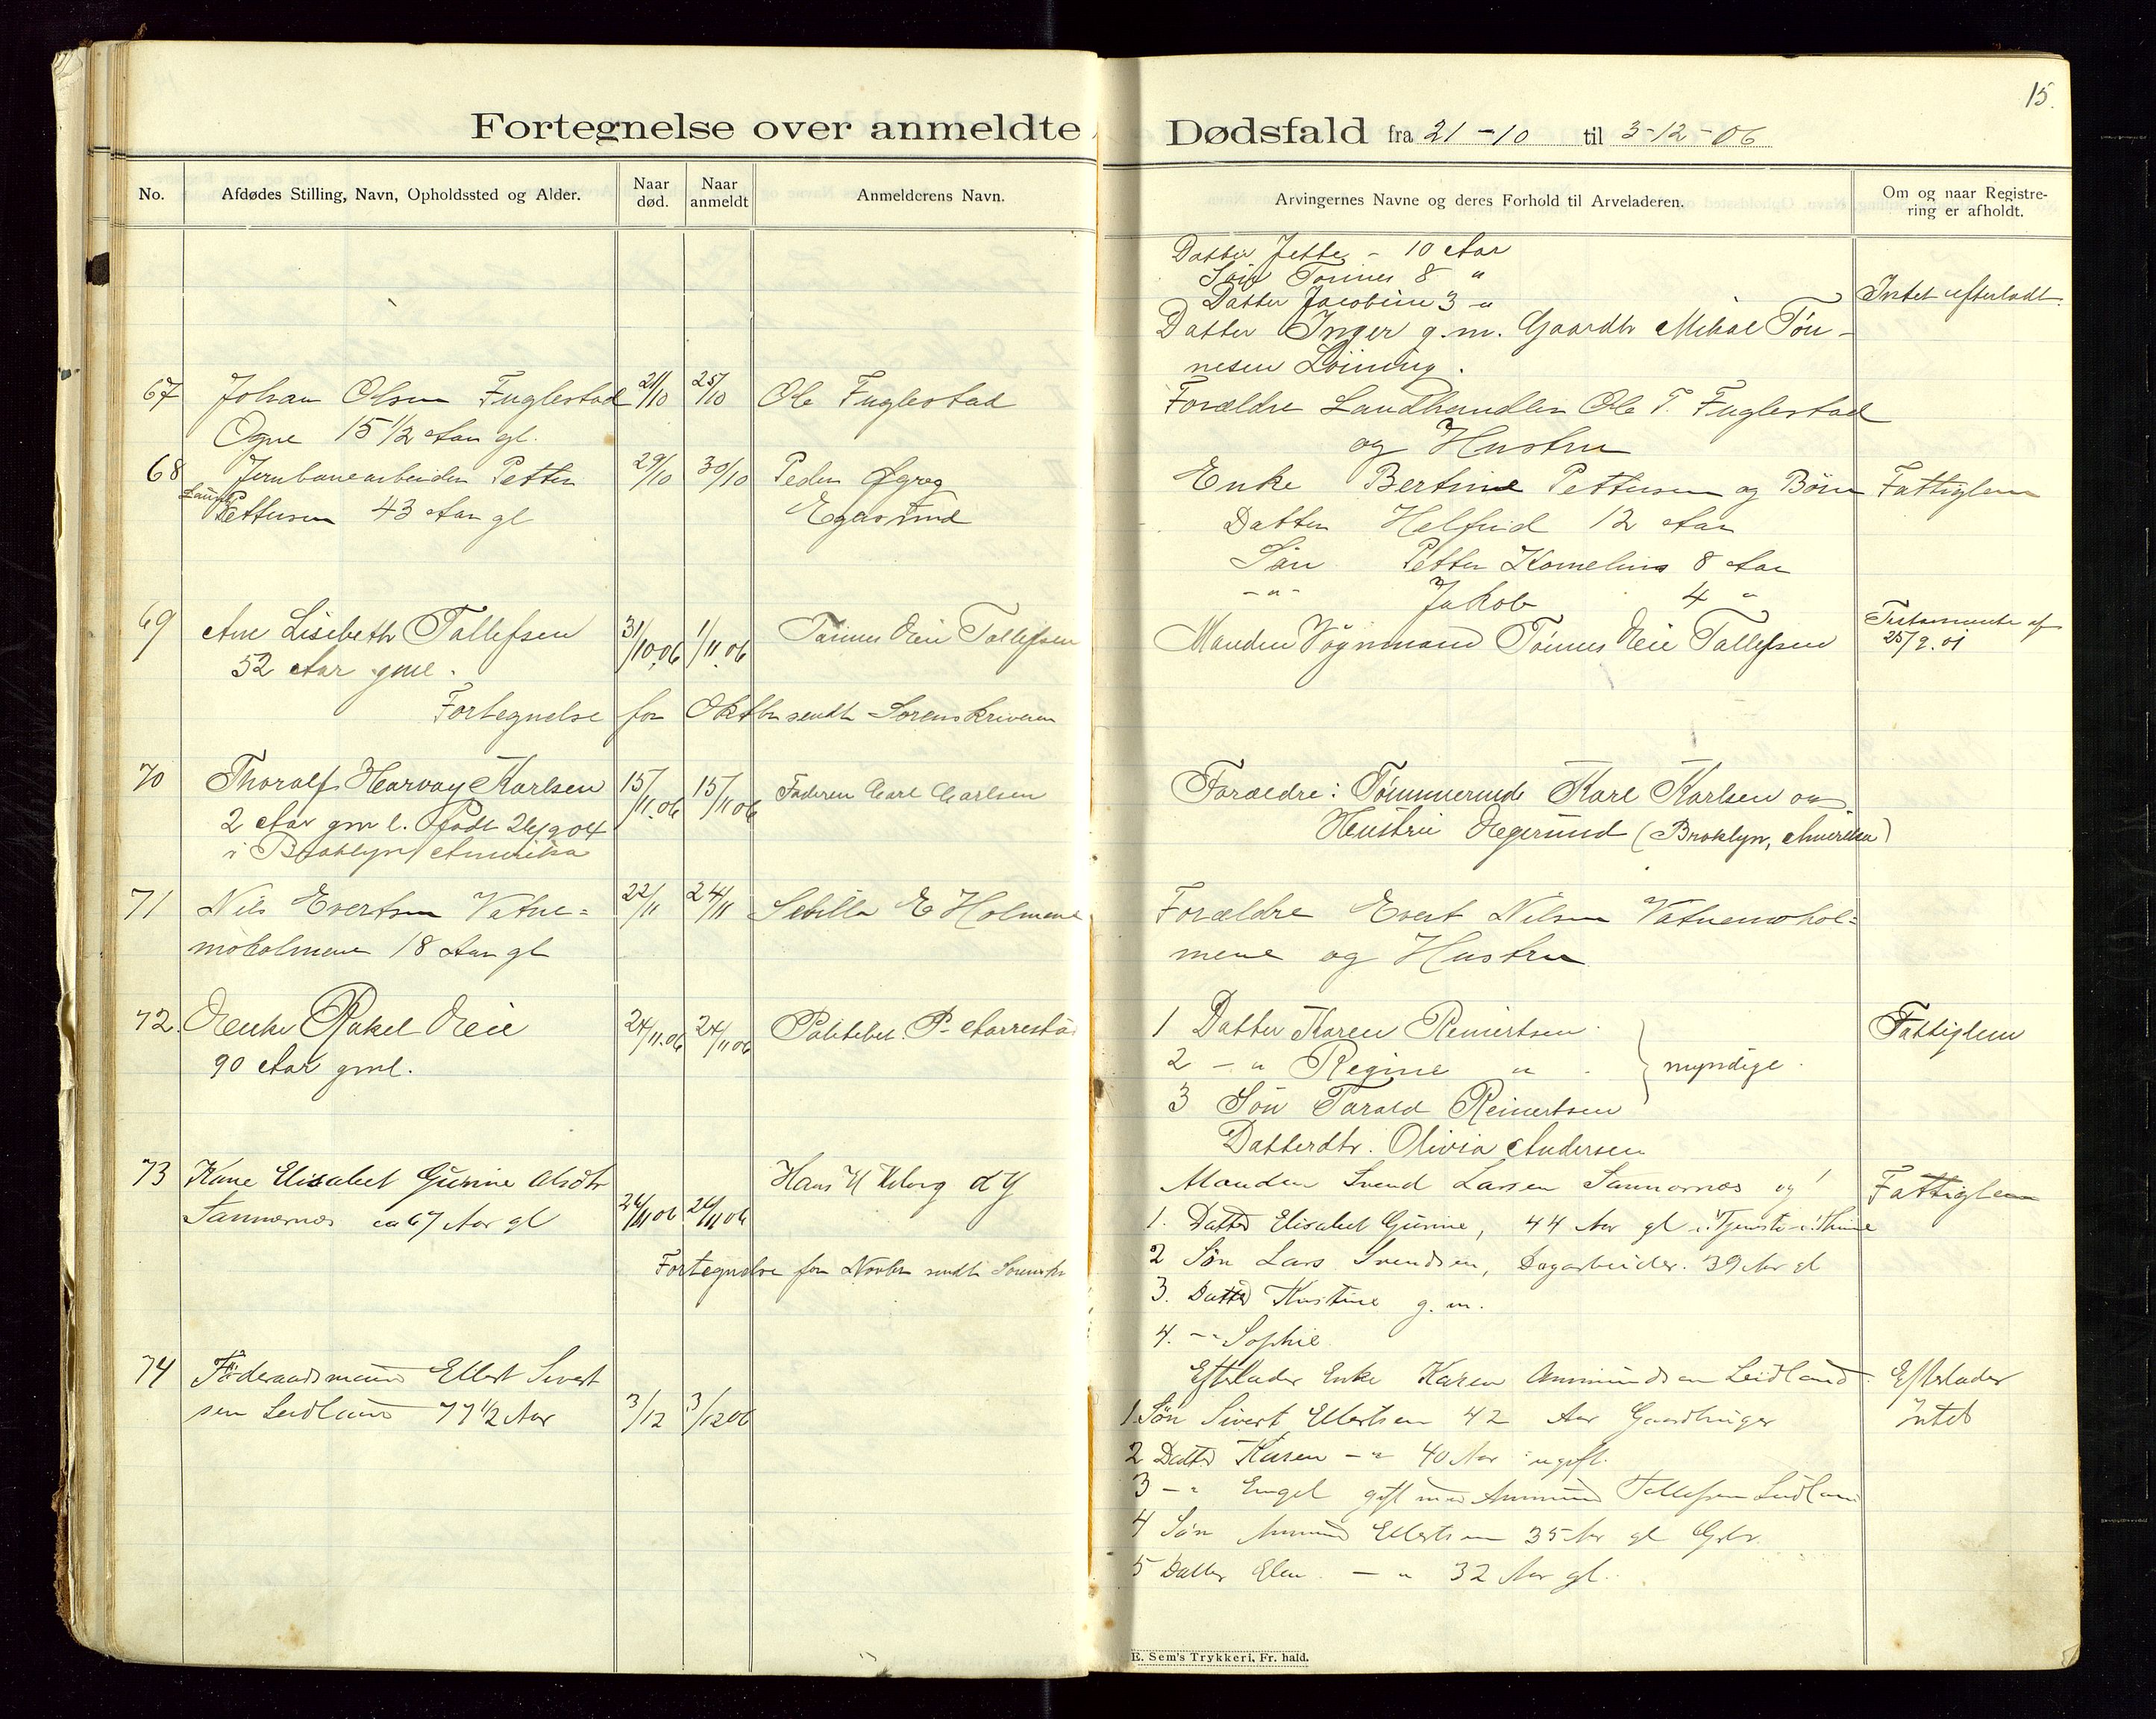 15.
Fortegnelse over anmeldte Dødsfald fra 21-10 til 3-12-06
No. Afdødes Stilling, Navn, Opholdssted og Alder. Naar død. Naar anmeldt Anmelderens Navn. Arvingernes Navne og deres Forhold til Arveladeren. Om og naar Registrering er afholdt.
Datter Jette - 10 Aar
Søn Tønnes 8 "
Datter Jacobine 3 "
Intet efterladt.
Datter Inger g.m. Gaardbr Mikal Tøn-
nesen Løining.
67 Johan Olsen Fuglestad 21/10 25/10 Ole Fuglestad Forældre Landhandler Ole T. Fuglestad
Ogne 15 1/2 Aar gl. og Hustru
68 Jernbanearbeider Petter 29/10 30/10 Peder Øgreg Enke Bertine Pettersen og Børn Fattiglem
Pettersen 43 Aar gl Egersund Datter Helfrid 12 Aar
Søn Petter Kornelius 8 Aar
-"- Jakob 4 "
69 Ane Lisebeth Tallefsen 31/10.06 1/11.06 Tønnes Eie Tallefsen Manden Vognmand Tønnes Eie Tallefsen Testamente af 25/2.01
52 Aar gml.
Fortegnelse for Oktbr sendt Sorenskriveren
70 Thoralf Harvay Karlsen 15/11.06 15/11 06 Faderen Carl Carlsen Forældre: Tømmermd Karl Karlsen og
2 Aar gml. Født 1904 Hustru Egersund (Broklyn, Amerika)
i Broklyn Amerika
71 Nils Evertsen Vatne= 22/11 24/11 Sebilla E Holmene Forældre Evert Nilsen Vatnemohol=
moholmene 18 Aar gl mene og Hustru
72. Enke Rakel Eie 24/11.06 24/11 06 Politibet. P. Aarrestad 1 Datter Karen Reinertsen Fattiglem
90 Aar gml. 2 - " Regine " myndige.
3 Søn Tarald Reinertsen
Datterdtr. Olivia Andersen
73 Kone Elisabet Gurine Olsdtr Hans Manden Svend Larsen Sannarnes og Fattiglem
Sannarnes ca 67 Aar gl 26/11 06 26/11 06 1. Datter Elisabet Gurine, 44 Aar gl i Tjeneste i Thime
Fortegnelse for Novbr sendt Sorenskr 2 Søn Lars Svendsen, Dagarbeider. 39 Aar gl
3. Datter Kristine g.m.
4. -" Sophie
74 Føderaadsmand Ellert Sivert Efterlader Enke Karen Ammundsen Leidland. Efterlader
sen Leidland 77 1/2 Aar 3/12 3/12 06 1. Søn Sivert Ellertsen 42 Aar Gaardbruger Intet
2 Datter Karen - " 40 Aar ugift.
3 - " Engel gift med Ammund Tallefsen Leidland
4 Søn Ammund Ellertsen 35 Aar gl Gbr.
5 Datter Elen - " 32 Aar gl.
E. Sem's Trykkeri, Fr. hald.